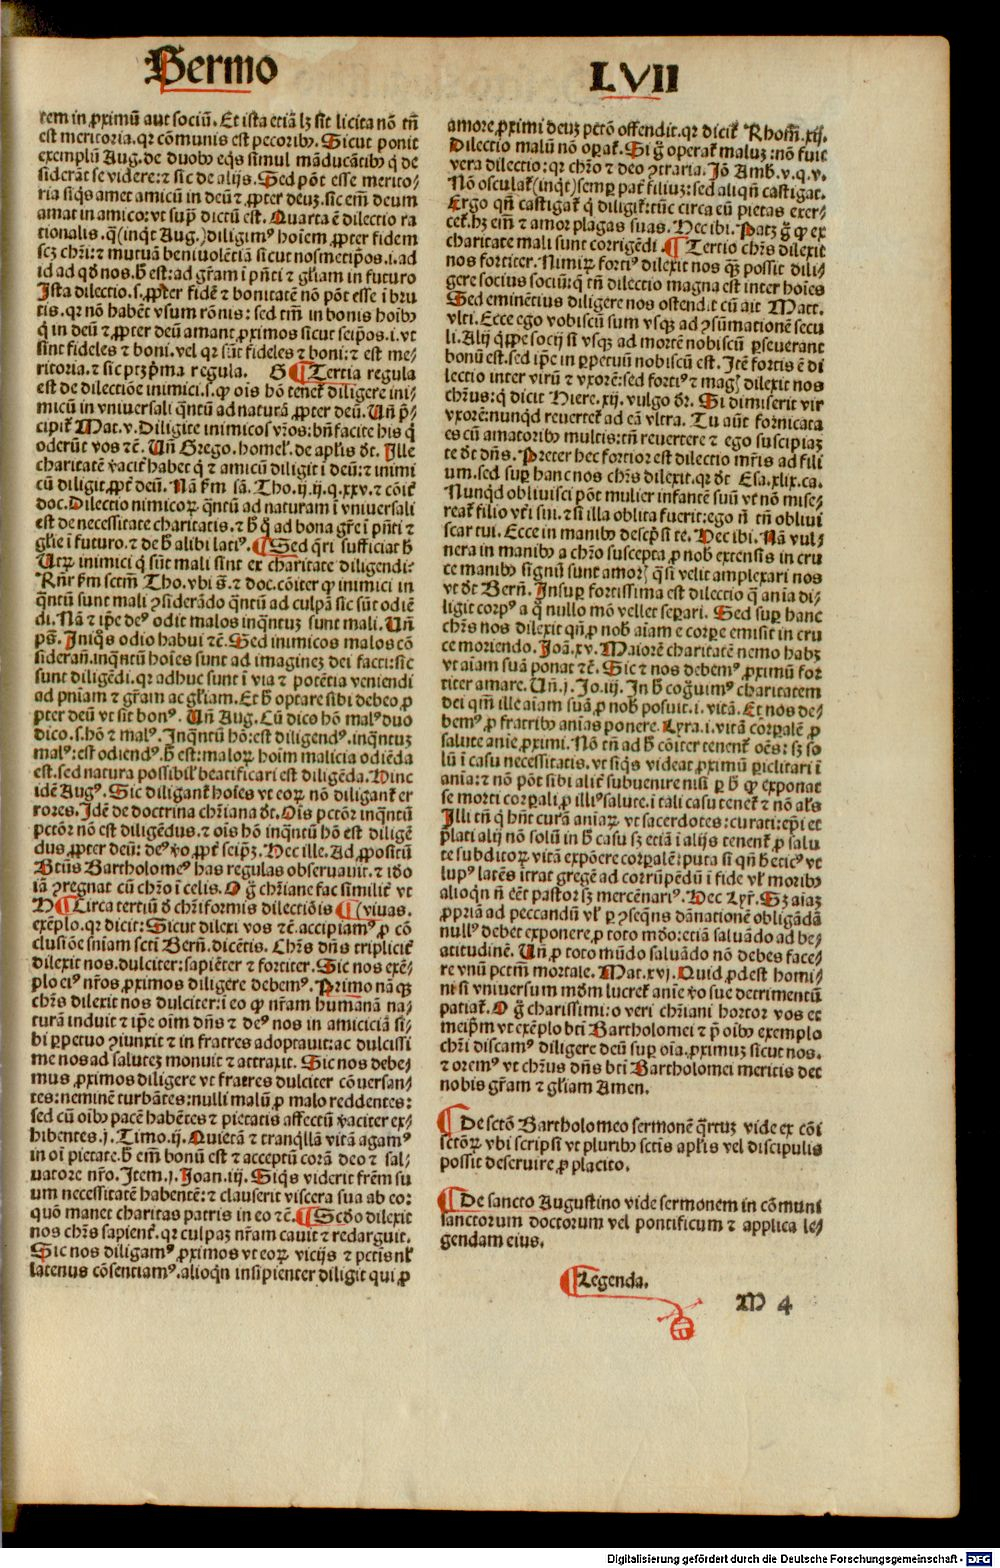 Sermo
LVII
rem in ꝓximũ aut sociũ. Et ista etiã lꝫ sit licita nõ tñ
est meritoria. qꝛ cõmunis est pecoribꝰ. Sicut ponit
exemplũ Aug. de duobꝰ eq̃s simul mãducãtibꝰ q̇ de
siderãt se videre: ⁊ sic de alijs. Sed põt esse merito⸗
ria siq̃s amet amicũ in deũ ⁊ ꝓpter deuꝫ. sic em̃ deum
amat in amico: vt supͣ dictũ est. Quarta ẽ dilectio ra
tionalis. q̃ (inqͥt Aug.) diligimꝰ hoĩem ꝓpter fidem
scꝫ chr̃i: ⁊ mutuã beniuolẽtiã sicut nosmetip̃os. i. ad
id ad qd̃ nos. h̃ est: ad gr̃am ĩ pñti ⁊ gl̃iam in futuro
Ista dilectio. s. ꝓpter fidẽ ⁊ bonitatẽ nõ põt esse ĩ bru
tis. qꝛ nõ habẽt vsum rõnis: sed tm̃ in bonis hoibꝰ
q̇ in deũ ⁊ ꝓpter deũ amant ꝓximos sicut seip̃os. i. vt
sint fideles ⁊ boni. vel qꝛ sũt fideles ⁊ boni: ⁊ est me⸗
ritoria. ⁊ sic ptꝫ pͥma regula. G ¶ Tertia regula
est de dilectiõe inimici. s. ꝙ ois hõ tenet᷑ diligere ini⸗
micũ in vniuersali qͣntũ ad naturã ꝓpter deũ. Uñ p̃⸗
cipit᷑ Mat. v. Diligite inimicos vr̃os: bñfacite his q̇
oderũt vos ⁊c̃. Uñ Grego. homel᷑. de apl̃is dt̃. Ille
charitatẽ ꝟacit᷑ habet q̇ ⁊ amicũ diligit ĩ deũ: ⁊ inimi
cũ diligit ꝓpt᷑ deũ. Nã k̃m sã. Tho. ij. ij. q. xxv. ⁊ cõit᷑
doc. Dilectio nimicoꝝ qͣntũ ad naturam ĩ vniuersali
est de necessitate charitatis. ⁊ h̃ q̃ ad bona gr̃e ĩ pñti ⁊
gl̃ie ĩ futuro. ⁊ de h̃ alibi latiꝰ. ¶ Sed q̃ri sufficiat h̃
Utꝝ inimici q̇ sũt mali sint ex charitate diligendi:
Rñr k̃m sctm̃ Tho. vbi s̃. ⁊ doc. cõiter ꝙ inimici in
qͣntũ sunt mali ꝯsiderãdo qͣntũ ad culpã sic sũt odiẽ
di. Nã ⁊ ip̃e deꝰ odit malos inqͣntuꝫ sunt mali. Uñ
pš. Iniqͦs odio habui ⁊c̃. Sed inimicos malos cõ
siderañ. inqͣntũ hoĩes sunt ad imagineꝫ dei facti: sic
sunt diligẽdi. qꝛ adhuc sunt ĩ via ⁊ potẽtia veniendi
ad pñiam ⁊ gr̃am ac gl̃iam. Et h̃ optare sibi debeo ꝓ
pter deũ vt sit bonꝰ. Uñ Aug. Cũ dico hõ malꝰ duo
dico. s. hõ ⁊ malꝰ. Inqͣntũ hõ: est diligendꝰ. inqͣntuꝫ
malꝰ: est odiendꝰ. h̃ est: maloꝝ hoim malicia odiẽda
est. sed natura possibil᷑ beatificari est diligẽda. Hinc
idẽ Augꝰ. Sic diligant᷑ hoĩes vt eoꝝ nõ diligant᷑ er
rores. Idẽ de doctrina chr̃iana dt̃. Ois pctõr inqͣntũ
pctõr nõ est diligẽdus. ⁊ ois hõ inqͣntũ hõ est diligẽ
dus ꝓpter deũ: deꝰ ꝟo ꝓpt᷑ seip̃ꝫ. Hec ille. Ad ꝓpositũ
Btũs Bartholomeꝰ has regulas obseruauit. ⁊ iõo
iã ꝯregnat cũ chr̃o ĩ celis. O g̃ chr̃iane fac similit᷑ vt
H ¶ Circa tertiũ d̃ chr̃iformis dilectiõis ¶ (viuas.
exẽplo. qꝛ dicit: Sicut dilexi vos ⁊c̃. accipiamꝰ ꝓ cõ
clusiõe sñiam scti Berñ. dicẽtis. Chr̃s dñs tripliciť
dilexit nos. dulciter: sapiẽter ⁊ fortiter. Sic nos exẽ⸗
plo ciꝰ nr̃os ꝓximos diligere debemꝰ. Primo nãqꝫ
chr̃s dilexit nos dulciter: ĩ eo ꝙ nr̃am humanã na⸗
turã induit ⁊ ip̃e oĩm dñs ⁊ deꝰ nos in amiciciã si⸗
bi ꝑpetuo ꝯiunxit ⁊ in fratres adoptauit: ac dulcissi
me nos ad saluteꝫ monuit ⁊ attraxit. Sic nos debe⸗
mus ꝓximos diligere vt fratres dulciter cõuersan⸗
tes: neminẽ turbãtes: nulli malũ ꝓ malo reddentes:
sed cũ oĩbꝰ pacẽ habẽtes ⁊ pietatis affectũ ꝟaciter ex⸗
hibentes. j. Timo. ij. Quietã ⁊ tranqͥllã vitã agamꝰ
in oĩ pietate. h̃ em̃ bonũ est ⁊ acceptũ corã deo ⁊ sal⸗
uatore nr̃o. Item. j. Ioan. iij. Siq̃s viderit fr̃em su
um necessitatẽ habentẽ: ⁊ clauserit viscera sua ab eo:
quõ manet charitas patris in eo ⁊c̃. ¶ Scd̃o dilexit
nos chr̃s sapient᷑. qꝛ culpaꝫ nr̃am cauit ⁊ redarguit.
Sic nos diligamꝰ ꝓximos vt eoꝝ vicijs ⁊ pctis nl᷑
latenus cõsentiamꝰ. alioqͥn insipienter diligit qui ꝓ
amore ꝓximi deuꝫ pctõ offendit. qꝛ dicit᷑ Rhom̃. xij.
Dilectio malũ nõ operat᷑. Si g̃ operat᷑ maluꝫ: nõ fuit
vera dilectio: qꝛ chr̃o ⁊ deo ꝯtraria. Iõ Amb. v. q. v.
Nõ osculat᷑ (inqͥt) semꝑ pat᷑ filiuꝫ: sed aliqñ castigat.
Ergo qñ castigat᷑ q̇ diligit᷑: tũc circa eũ pietas exer⸗
cet᷑. hꝫ em̃ ⁊ amor plagas suas. Hec ibi. Patꝫ g̃ ꝙ ex
charitate mali sunt corrigẽdi. ¶ Tertio chr̃s dilexit
nos fortiter. Nimiꝝ fortiꝰ dilexit nos qͣꝫ possit dili⸗
gere socius sociũ: q̃ tñ dilectio magna est inter hoĩes
Sed eminẽtius diligere nos ostendit cũ ait Matt.
vlti. Ecce ego vobiscũ sum vsqꝫ ad ꝯsũmationẽ secu
li. Alij q̇ppe socij si vsqꝫ ad mortẽ nobiscũ ꝑseuerant
bonũ est. sed ip̃e in ꝑpetuũ nobiscũ est. Itẽ fortis ẽ di
lectio inter virũ ⁊ vxorẽ: sed fortiꝰ ⁊ magꝭ dilexit nos
chr̃us: q̇ dicit Hiere. xij. vulgo dr̃. Si dimiserit vir
vxorẽ: nunqͥd reuertet᷑ ad eã vltra. Tu aũt fornicata
es cũ amatoribꝰ multis: tñ reuertere ⁊ ego suscipiaꝫ
te dt̃ dñs. Preter hec fortior est dilectio mr̃is ad fili
um. sed suꝑ hanc nos chr̃s dilexit. qꝛ dt̃ Esa. xlix. ca.
Nunqͥd obliuisci põt mulier infantẽ suũ vt nõ mise⸗
reat᷑ filio vt̃i sui. ⁊ si illa oblita fuerit: ego ñ tñ obliui
scar tui. Ecce in manibꝰ descp̃si te. Hec ibi. Nã vul⸗
nera in manibꝰ a chr̃o suscepta ꝓ nob̃ extensis in cru
ce manibꝰ signũ sunt amorꝭ q̃si velit amplexari nos
vt dt̃ Berñ. Insuꝑ fortissima est dilectio q̃ aĩa di⸗
ligit corpꝰ a q̃ nullo mõ vellet seꝑari. Sed suꝑ hanc
chr̃s nos dilexit qñ ꝓ nob̃ aĩam e corꝑe emisit in cru
ce moriendo. Ioã. xv. Maiorẽ charitatẽ nemo habꝫ
vt aĩam suã ponat ⁊c̃. Sic ⁊ nos debemꝰ ꝓximũ for
titer amare. Uñ. j. Io. iij. In h̃ cog̃uimꝰ charitatem
dei qm̃ ille aĩam suã ꝓ nob̃ posuit. i. vitã. Et nos de⸗
bemꝰ ꝓ fratribꝰ aĩas ponere. Lyra. i. vitã corꝑalẽ ꝓ
salute aĩe ꝓximi. Nõ tñ ad h̃ cõiter tenent᷑ oẽs: sꝫ so
lũ ĩ casu necessitatis. vt siq̃s videat ꝓximũ ꝑiclitari ĩ
aĩa: ⁊ nõ põt sibi alit᷑ subuenire nisi ꝑ h̃ ꝙ exponat
se morti corꝑali ꝓ illiꝰ salute. ĩ tali casu tenet᷑ ⁊ nõ al̃s
Illi tñ q̇ hñt curã aĩaꝝ. vt sacerdotes: curati: ep̃i et
p̃lati alij nõ solũ in h̃ casu sꝫ etiã ĩ alijs tenent᷑ ꝓ salu
te subditoꝝ vitã expõere corꝑalẽ: puta si qñ h̃eticꝰ vt
lupꝰ latẽs ĩtrat gregẽ ad corrũpẽdũ ĩ fide vl᷑ moribꝰ
alioqn ñ eẽt pastor sꝫ mercẽnariꝰ. Hec Lyr̃. Sꝫ aĩaꝫ
ꝓpriã ad peccandũ vl᷑ ꝑ ꝯseqñs dãnationẽ obligãdã
nullꝰ debet exponere ꝓ toto mũdo: etiã saluãdo ad be⸗
atitudinẽ. Uñ ꝓ toto mũdo saluãdo nõ debes face⸗
re vnũ pctm̃ mortale. Mat. xvj. Quid ꝓdest homi⸗
ni si vniuersum mũdm lucret᷑ aĩe ꝟo sue detrimentũ
patiat᷑. O g̃ charissimi: o veri chr̃iani hortor vos et
meip̃m vt exẽplo bti Bartholomei ⁊ p̃ oĩbꝰ exemplo
chr̃i discamꝰ diligere deũ suꝑ oĩa. ꝓximuꝫ sicut nos.
⁊ oremꝰ vt chr̃us dñs bti Bartholomei meritis det
nobis gr̃am ⁊ gl̃iam Amen.
¶ De sctõ Bartholomeo sermonẽ q̃rtuꝫ vide ex cõi
sctõꝝ vbi scripsi vt pluribꝰ sctis apl̃is vel discipulis
possit deseruire ꝓ placito.
¶ De sancto Augustino vide sermonem in cõmuni
sanctorum doctorum vel pontificum ⁊ applica le⸗
gendam eius.
¶ Legenda.
M 4
Digitalisierung gefördert durch die Deutsche Forschungsgemeinschaft - DFG